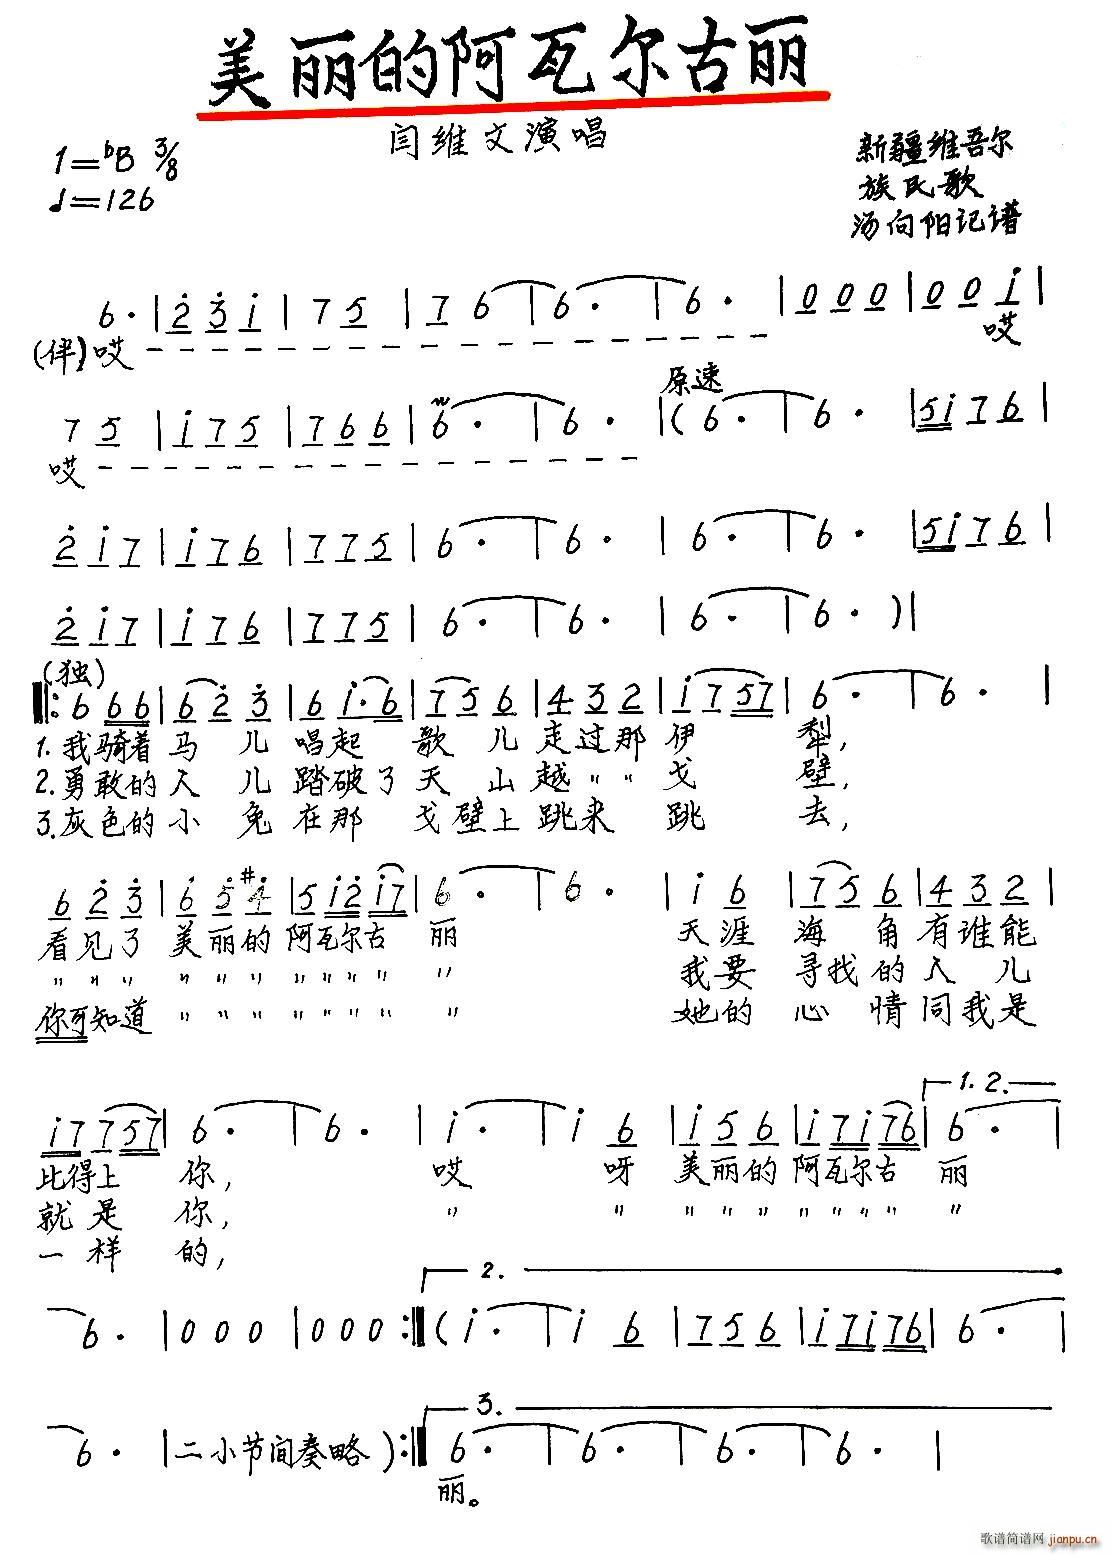 美丽的阿瓦尔古丽
闫维文演唱
1=♭B 3/8
♩=126
新疆维吾尔
族民歌
汤向阳记谱
6· | 2̇ 3̇ i | 7 5 | 7 6 | 6· | 6· | 0 0 0 | 0 0 i |
(伴)哎 哎
原速
7 5 | i 7 5 | 7 6 6 | 6· | 6· | ( 6· | 6· | 5 i 7 6 |
哎
2̇ i 7 | i 7 6 | 7 7 5 | 6· | 6· | 6· | 6· | 5 i 7 6 |
2̇ i 7 | i 7 6 | 7 7 5 | 6· | 6· | 6· | 6· ) |
(独)
‖: 6 6 6 | 6 2̇ 3̇ | 6 i· 6 | 7 5 6 | 4 3 2 | i 7 5 7 | 6· | 6· |
1. 我骑着马儿唱起歌儿走过那伊犁,
2. 勇敢的人儿踏破了天山越〃〃戈壁,
3. 灰色的小兔在那戈壁上跳来跳去,
6 2̇ 3̇ | 6 5 #4 | 5 i 2̇ i 7 | 6· | 6· | i 6 | 7 5 6 | 4 3 2 |
看见了美丽的阿瓦尔古丽 天涯海角有谁能
〃〃〃〃〃〃〃〃〃〃〃 我要寻找的人儿
你可知道〃〃〃〃〃〃〃〃 她的心情同我是
1. 2.
i 7 7 5 7 | 6· | 6· | i· | i 6 | i 5 6 | i 7 i 7 6 | 6· |
比得上你, 哎 呀美丽的阿瓦尔古丽
就是你, 〃 〃〃〃〃〃〃〃〃〃
一样的,
2.
6· | 0 0 0 | 0 0 0 :‖ ( i· | i 6 | 7 5 6 | i 7 i 7 6 | 6· |
3.
6· | 二小节间奏略 ) :‖ 6· | 6· | 6· | 6· |
丽。
歌谱简谱网 jianpu.cn